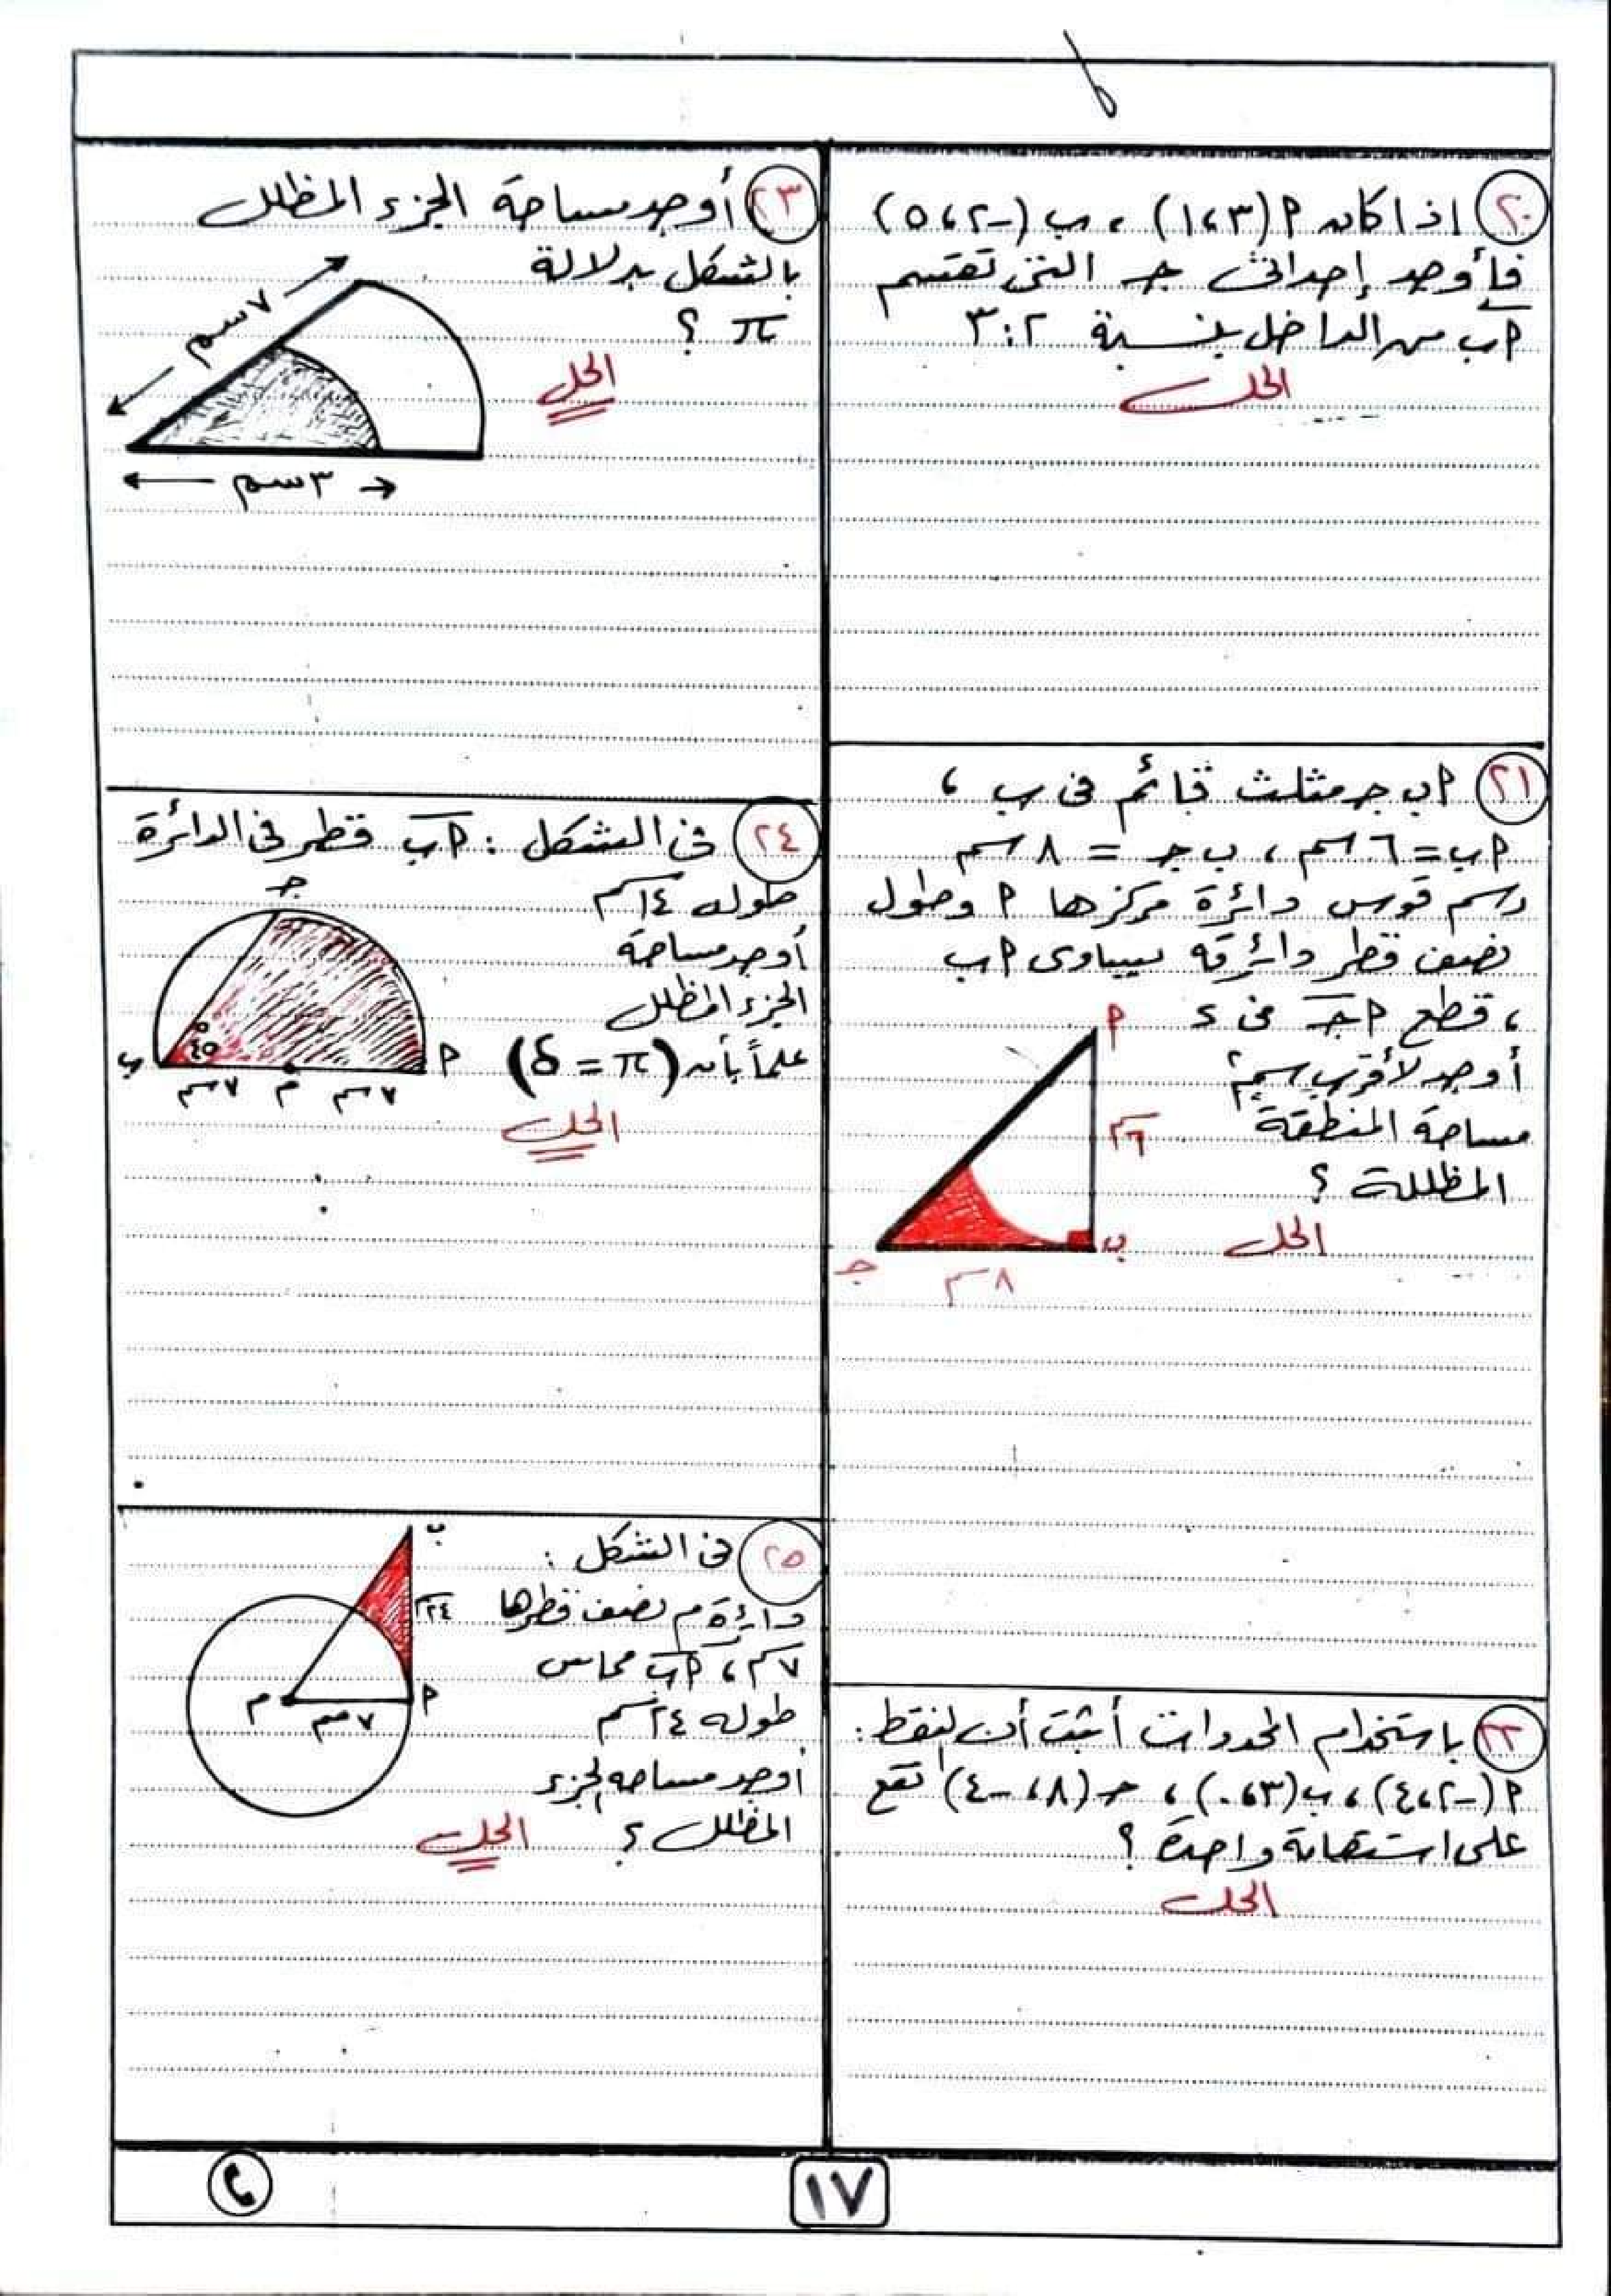 ٢٠ اذا كان م (٣،١) ، ب (-٢،٥)
فأوجد إحداثى جـ التى تقسم
مب من الداخل بنسبة ٢:٣
الحل
٢١ م ب جـ مثلث قائم فى ب ،
مب = ٦سم ، ب جـ = ٨سم
رسم قوس دائرة مركزها م وطول
نصف قطر دائرته يساوى مب
، قطع مجـ فى ء
أوجد لأقرب سم٢
مساحة المنطقة
المظللة ؟
م
٦سم
ب
٨سم
جـ
الحل
٢٢ باستخدام المحددات أثبت أن النقط :
م (-٤،٢) ، ب (٣،٠) ، جـ (٨،-٤) تقع
على استقامة واحدة ؟
الحل
٢٣ أوجد مساحة الجزء المظلل
بالشكل بدلالة
π ؟
الحل
٧سم
٣سم
٢٤ فى الشكل : مب قطر فى الدائرة
طوله ١٤سم
أوجد مساحة
الجزء المظلل
علماً بأن (π = δ)
جـ
٤٥°
ب
م
٧سم م ٧سم
الحل
٢٥ فى الشكل :
دائرة م نصف قطرها
٧سم ، مب مماس
طوله ٢٤سم
أوجد مساحه الجزء
المظلل ؟
الحل
ب
٢٤سم
م
٧سم
م
١٧